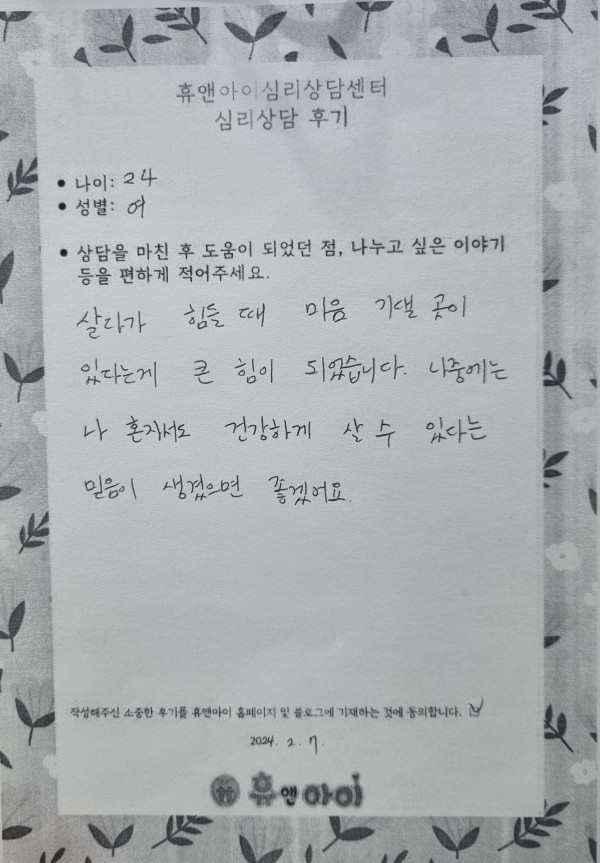 휴앤아이심리상담센터
심리상담 후기
• 나이: 24
• 성별: 여
• 상담을 마친 후 도움이 되었던 점, 나누고 싶은 이야기
등을 편하게 적어주세요.
살다가 힘들 때 마음 기댈 곳이
있다는게 큰 힘이 되었습니다. 나중에는
나 혼자서도 건강하게 살 수 있다는
믿음이 생겼으면 좋겠어요.
작성해주신 소중한 후기를 휴앤아이 홈페이지 및 블로그에 기재하는 것에 동의합니다. ☑
2024. 2. 7.
휴앤아이